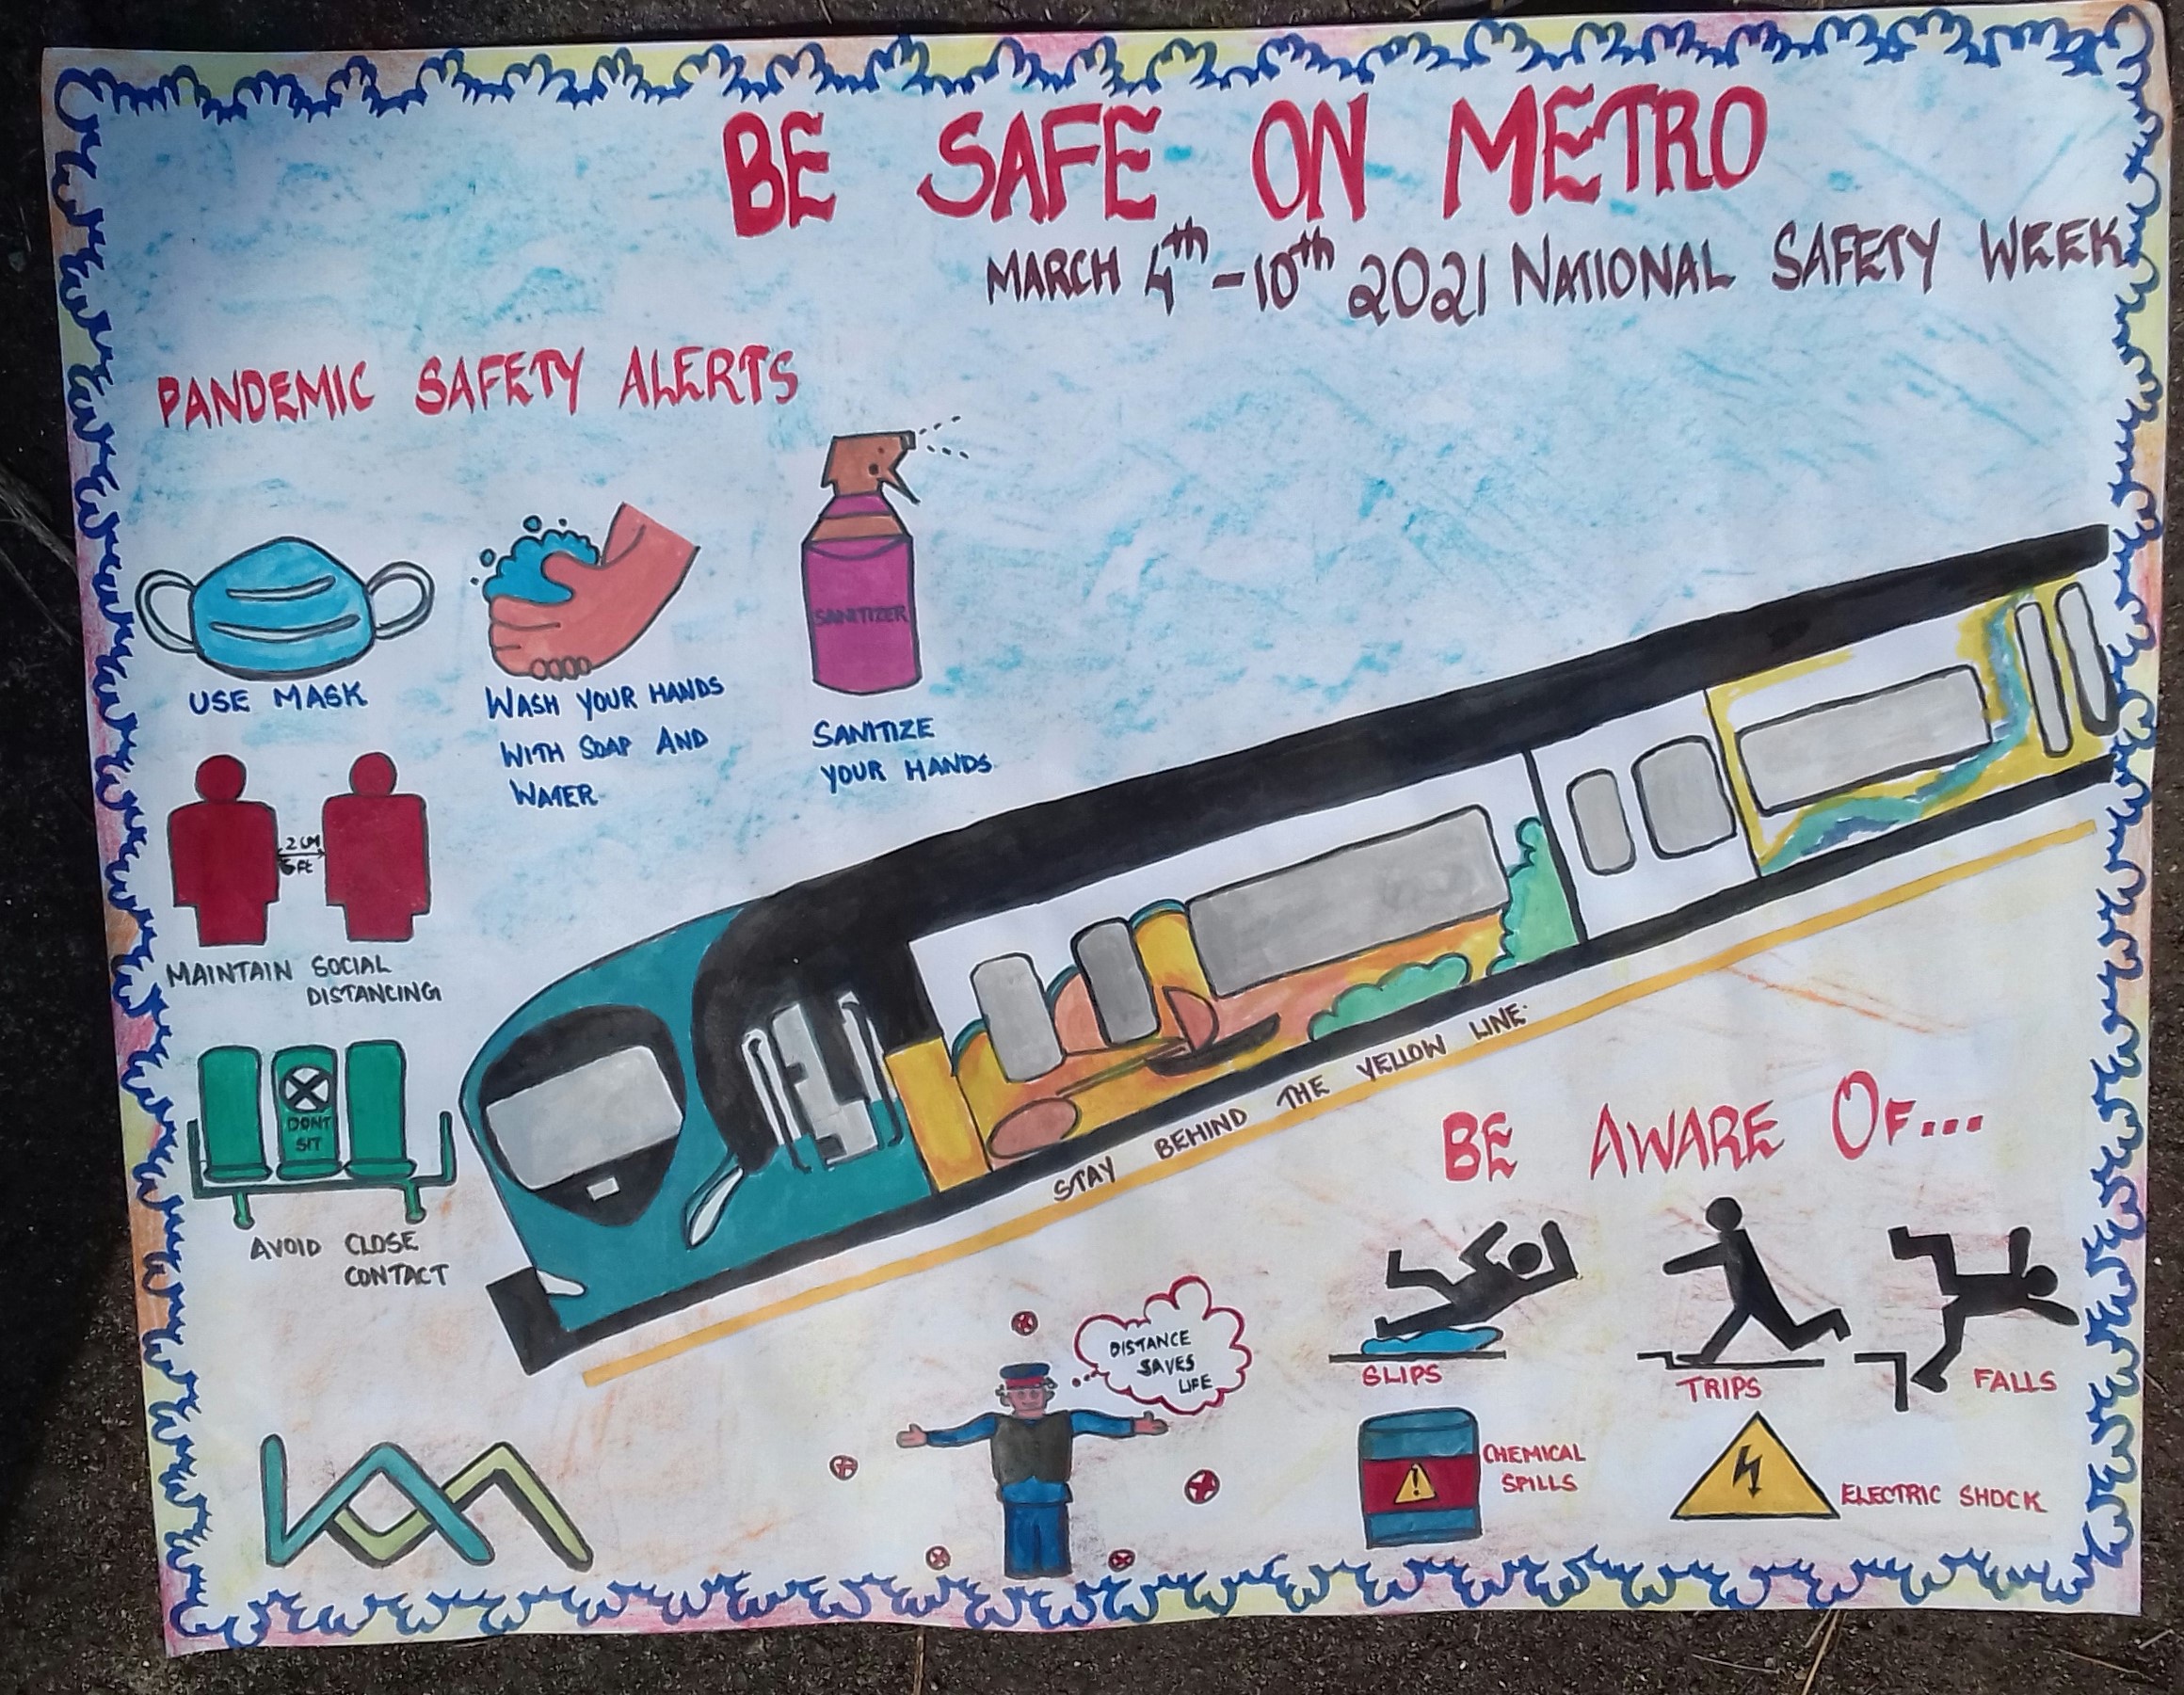 BE SAFE ON METRO
MARCH 4th - 10th 2021 NATIONAL SAFETY WEEK
PANDEMIC SAFETY ALERTS
SANITIZER
USE MASK
WASH YOUR HANDS
WITH SOAP AND
WATER
SANITIZE
YOUR HANDS
2 CM
6 ft
MAINTAIN SOCIAL
DISTANCING
DONT
SIT
AVOID CLOSE
CONTACT
STAY BEHIND THE YELLOW LINE.
BE AWARE OF...
SLIPS
TRIPS
FALLS
CHEMICAL
SPILLS
ELECTRIC SHOCK
DISTANCE
SAVES
LIFE